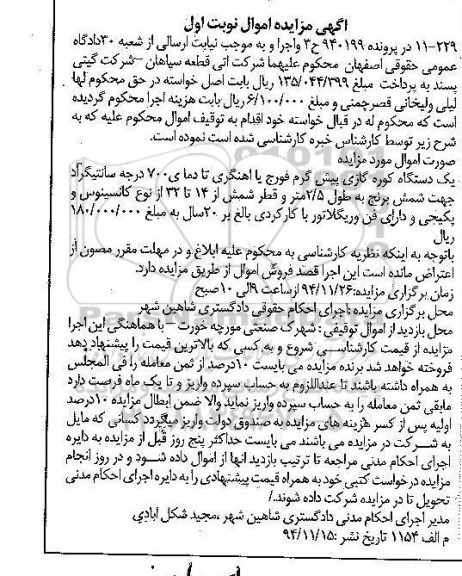 آگهی مزایده اموال نوبت اول
۱۱-۲۲۹ در پرونده ۹۴۰۱۹۹ ح۳ واجرا و به موجب نیابت ارسالی از شعبه ۳۰دادگاه
عمومی حقوقی اصفهان محکوم علیهما شرکت آتی قطعه سپاهان -شرکت گیتی
پسند به پرداخت مبلغ ۱۳۵/۰۴۴/۳۹۹ ریال بابت اصل خواسته در حق محکوم لها
لیلی ولیخانی قصرچمنی و مبلغ ۶/۱۰۰/۰۰۰ ریال بابت هزینه اجرا محکوم گردیده
است که محکوم له در قبال خواسته خود اقدام به توقیف اموال محکوم علیه که به
شرح زیر توسط کارشناس خبره کارشناسی شده است نموده است.
صورت اموال مورد مزایده
یک دستگاه کوره گازی پیش گرم فورج یا آهنگری تا دما ی۷۰۰ درجه سانتیگراد
جهت شمش برنج به طول ۲/۵متر و قطر شمش از ۱۴ تا ۳۲ از نوع کانسینوس و
پکیجی و دارای فن وریگلاتور با کارکردی بالغ بر ۲۰سال به مبلغ ۱۸۰/۰۰۰/۰۰۰
ریال
باتوجه به اینکه نظریه کارشناسی به محکوم علیه ابلاغ و در مهلت مقرر مصون از
اعتراض مانده است این اجرا قصد فروش اموال از طریق مزایده دارد.
زمان برگزاری مزایده:۹۴/۱۱/۲۶ ازساعت ۹الی ۱۰صبح
محل برگزاری مزایده :اجرای احکام حقوقی دادگستری شاهین شهر
محل بازدید از اموال توقیفی : شهرک صنعتی مورچه خورت - با هماهنگی این اجرا
مزایده از قیمت کارشناسی شروع و به کسی که بالاترین قیمت را پیشنهاد دهد
فروخته خواهد شد برنده مزایده می بایست ۱۰درصد از ثمن معامله را فی المجلس
به همراه داشته باشند تا عنداللزوم به حساب سپرده واریز و تا یک ماه فرصت دارد
مابقی ثمن معامله را به حساب سپرده واریز نماید والا ضمن ابطال مزایده ۱۰درصد
اولیه پس از کسر هزینه های مزایده به صندوق دولت واریز میگردد کسانی که مایل
به شرکت در مزایده می باشند می بایست حداکثر پنج روز قبل از مزایده به دایره
اجرای احکام مدنی مراجعه تا ترتیب بازدید آنها از اموال داده شود و در روز انجام
مزایده درخواست کتبی خود به همراه قیمت پیشنهادی را به دایره اجرای احکام مدنی
تحویل تا در مزایده شرکت داده شوند./
مدیر اجرای احکام مدنی دادگستری شاهین شهر ،مجید شکل آبادی
م الف ۱۱۵۴ تاریخ نشر :۹۴/۱۱/۱۵